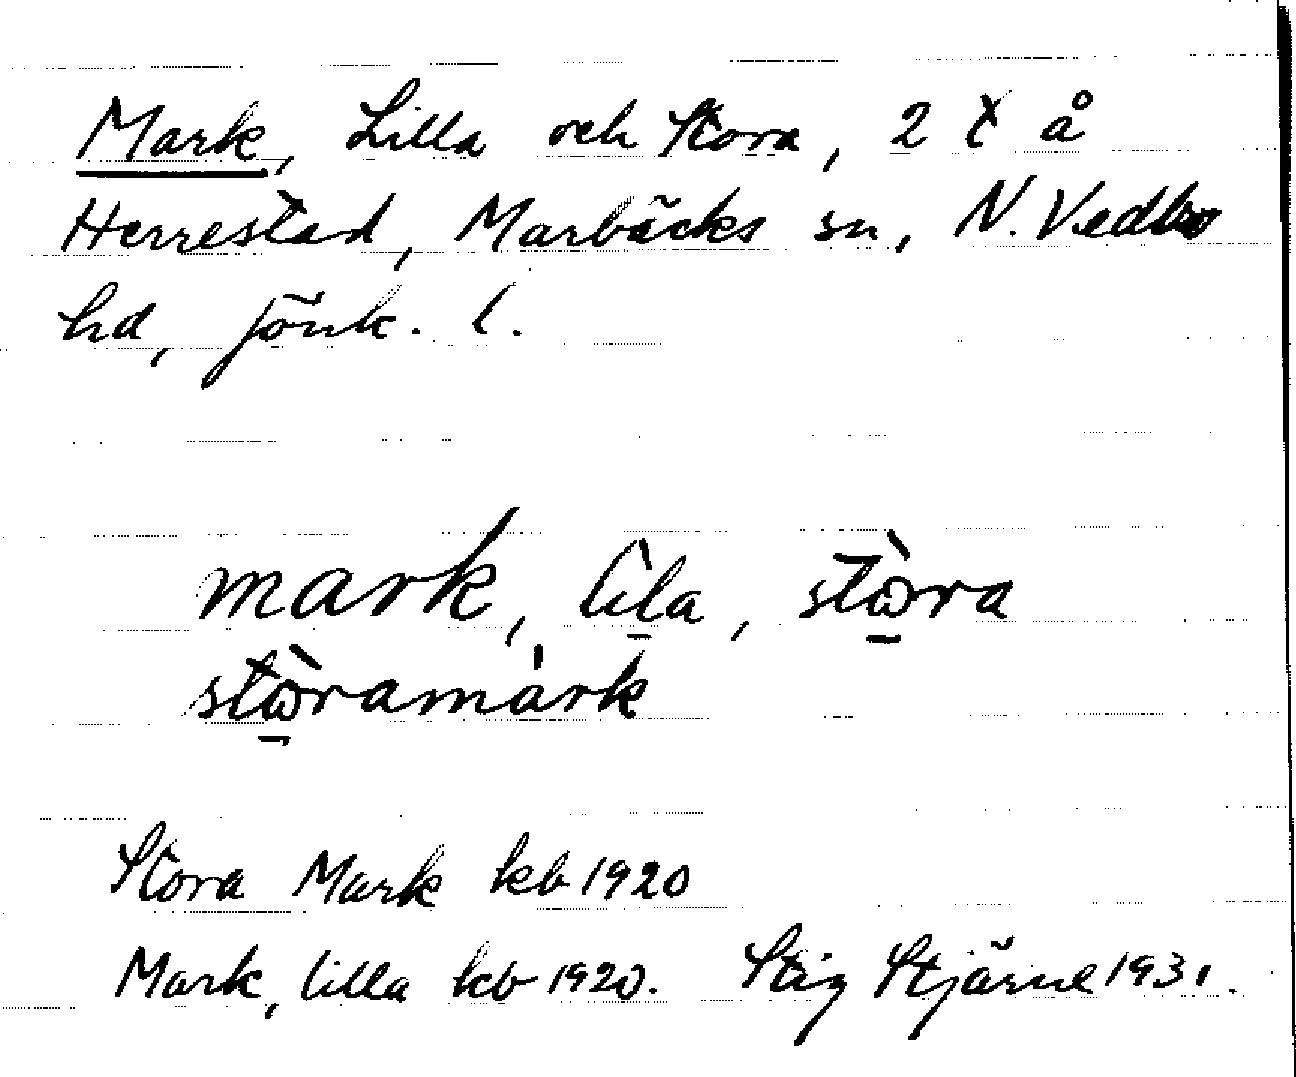 Mark, Lilla och Stora, 2 t å
Herrestad, Marbäcks sn, N. Vedbo
hd, Jönk. l.
mark, lìla, stòra
stòramárk
Stora Mark kb 1920
Mark, lilla kb 1920. Stig Stjärne 1931.